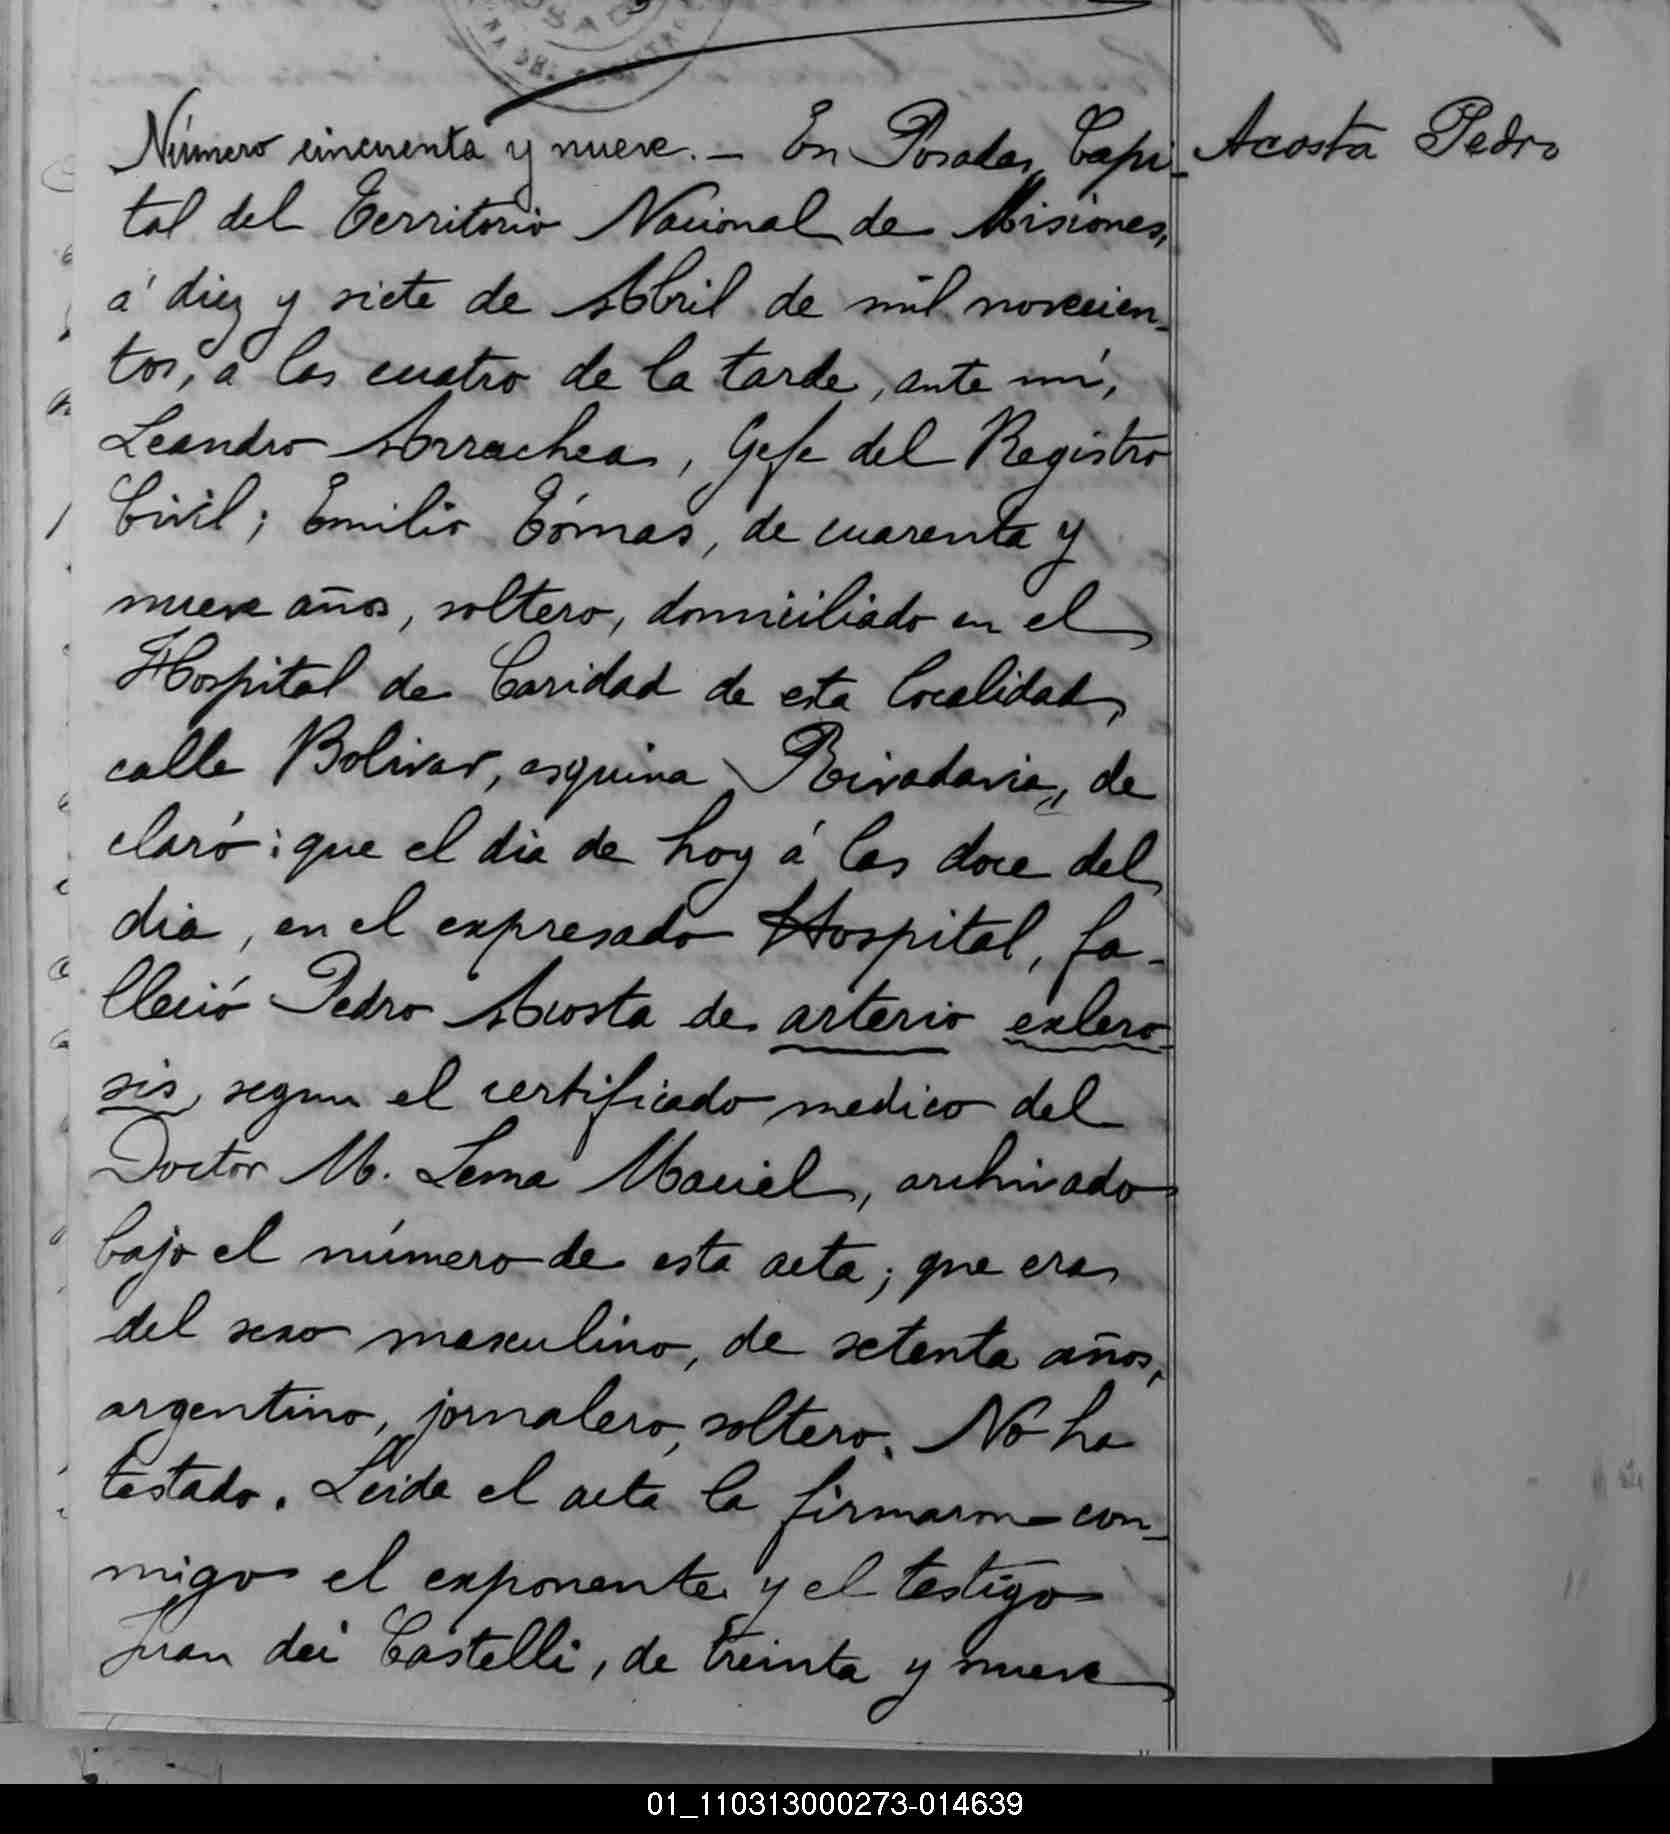 Número cincuenta y nueve. — En Posadas, Capi-
Acosta Pedro
tal del Territorio Nacional de Misiones,
á diez y siete de Abril de mil novecien-
tos, á las cuatro de la tarde, ante mí,
Leandro Arrachea, Gefe del Registro
Civil; Emilio Tómas, de cuarenta y
nueve años, soltero, domiciliado en el
Hospital de Caridad de esta localidad,
calle Bolivar, esquina Rivadavia, de
claró: que el dia de hoy á las doce del
dia, en el expresado Hospital, fa-
lleció Pedro Acosta de arterio exlero-
sis, segun el certificado medico del
Doctor M. Lema Maciel, archivado
bajo el número de esta acta; que era
del sexo masculino, de setenta años,
argentino, jornalero, soltero. No ha
testado. Leida el acta la firmaron con-
migo el exponente y el testigo
Juan dei Castelli, de treinta y nueve
01_110313000273-014639